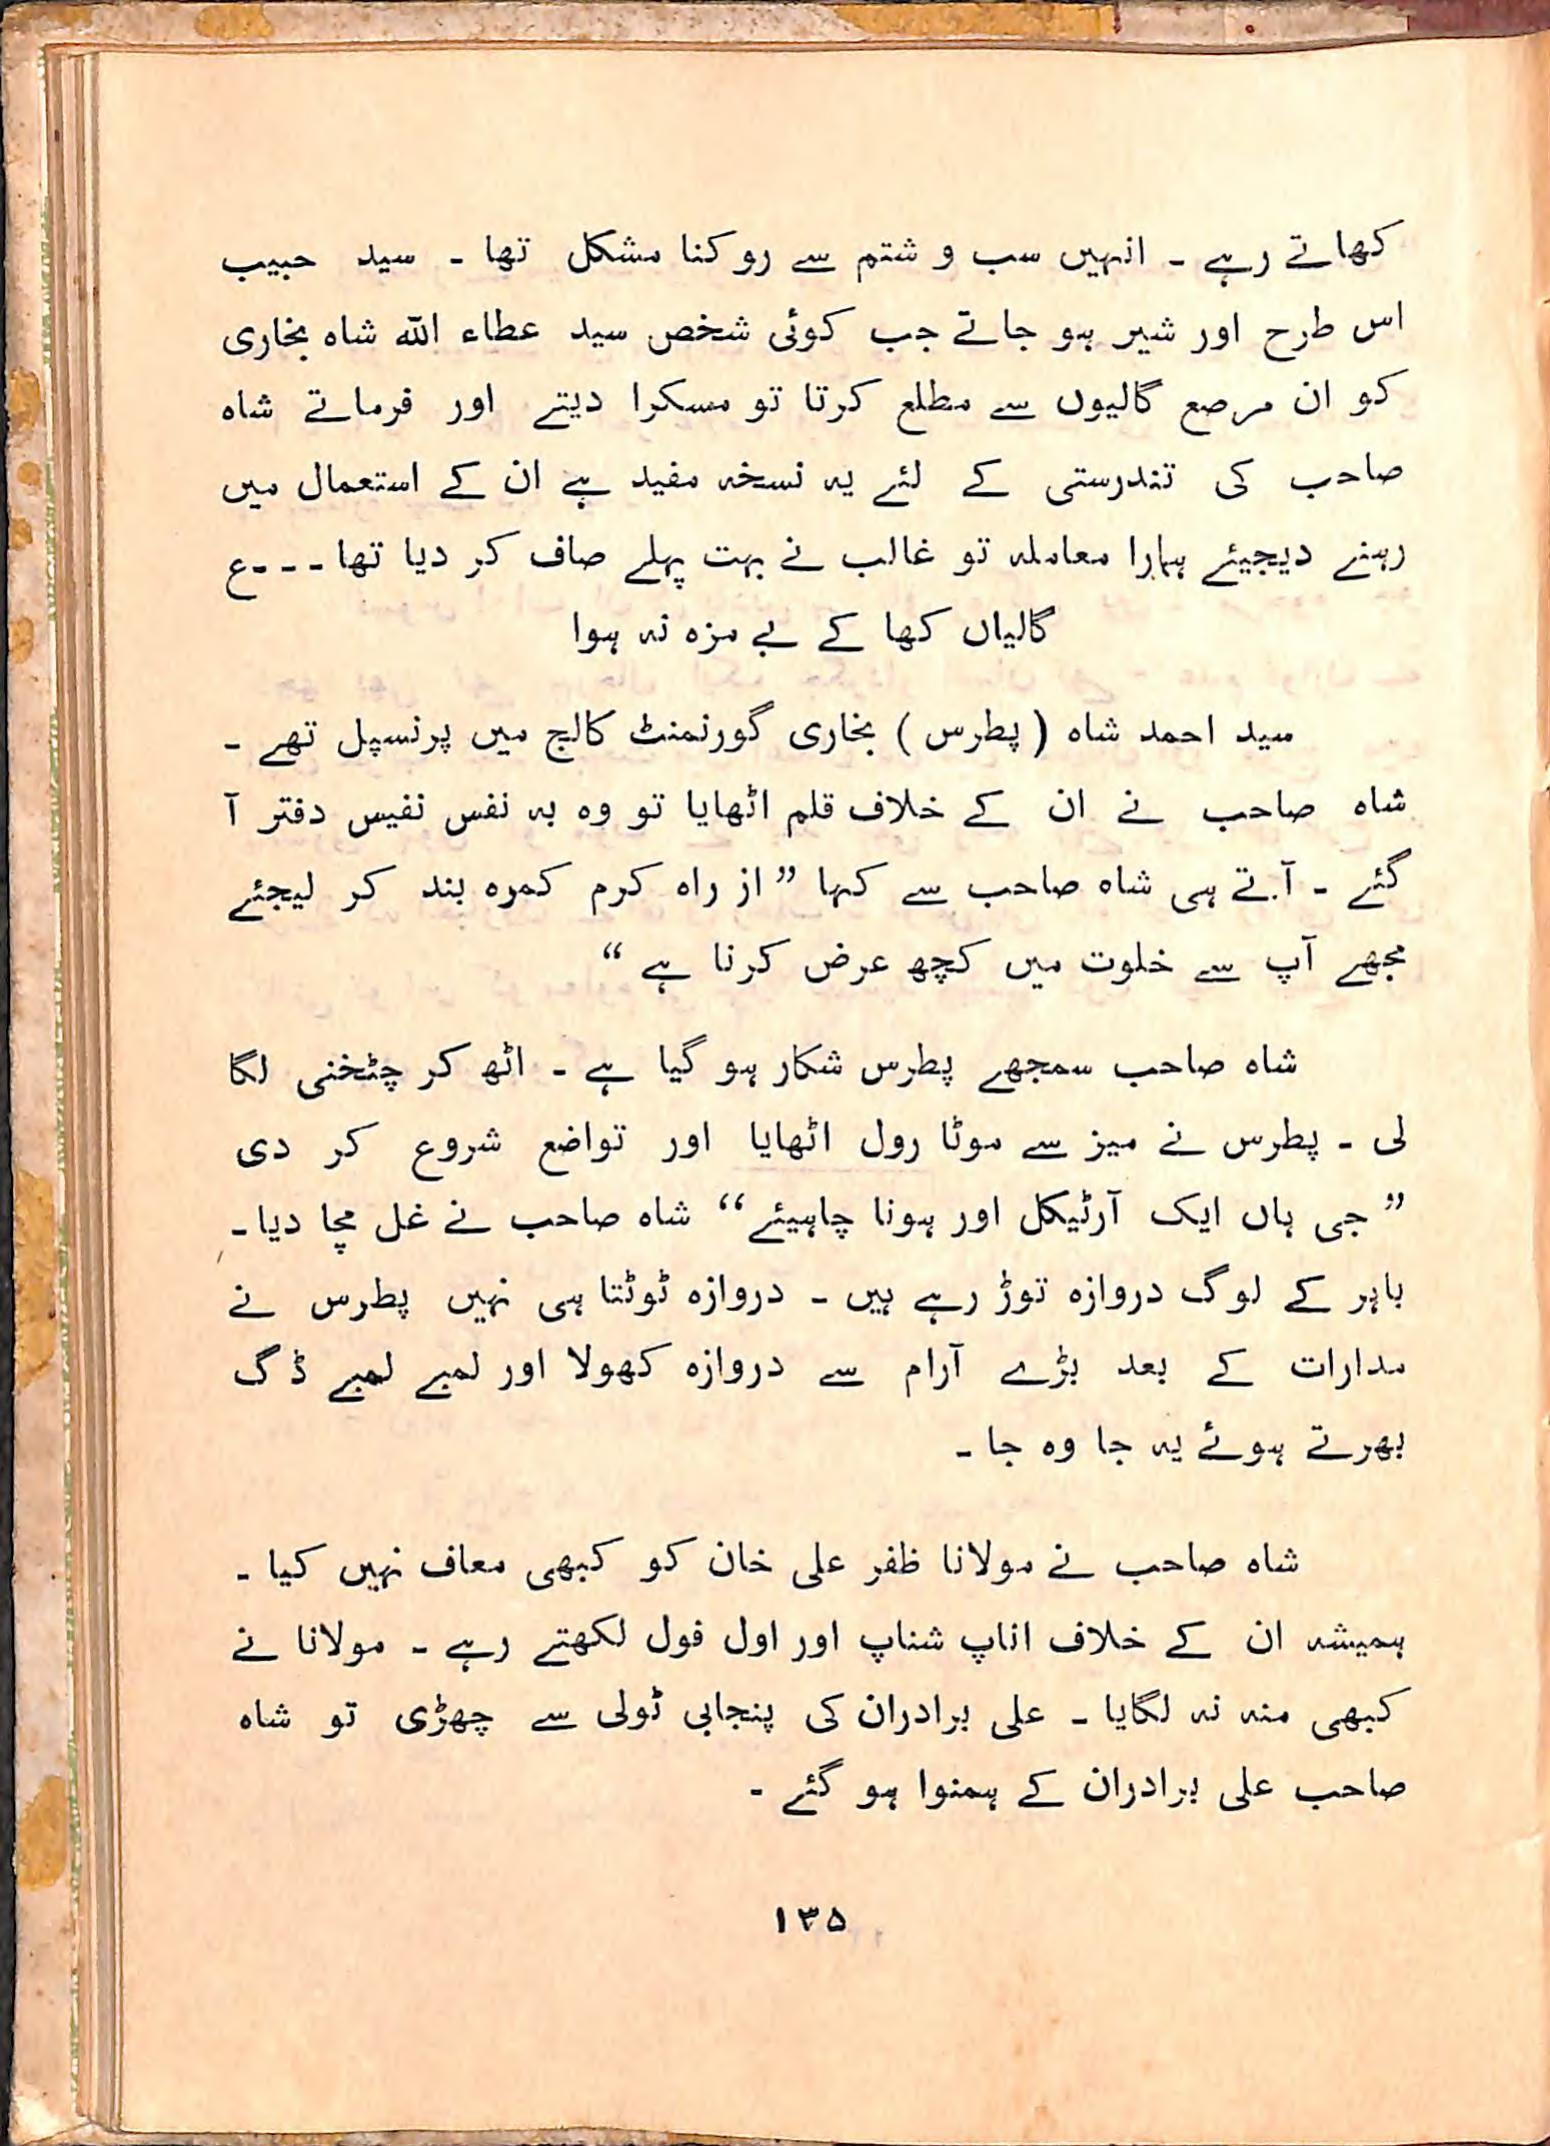 کھاتے رہے ۔ انہیں سب و شتم سے روکنا مشکل تھا ۔ سید حبیب
اس طرح اور شیر ہو جاتے جب کوئی شخص سید عطاء اللہ شاہ بخاری
کو ان مرصع گالیوں سے مطلع کرتا تو مسکرا دیتے اور فرماتے شاہ
صاحب کی تندرستی کے لئے یہ نسخہ مفید ہے ان کے استعمال میں
رہنے دیجیئے ہمارا معاملہ تو غالب نے بہت پہلے صاف کر دیا تھا ۔۔۔ع
گالیاں کھا کے بے مزہ نہ ہوا
سید احمد شاہ (پطرس) بخاری گورنمنٹ کالج میں پرنسپل تھے ۔
شاہ صاحب نے ان کے خلاف قلم اٹھایا تو وہ بہ نفس نفیس دفتر آ
گئے ۔ آتے ہی شاہ صاحب سے کہا ”از راہ کرم کمرہ بند کر لیجئے
مجھے آپ سے خلوت میں کچھ عرض کرنا ہے “
شاہ صاحب سمجھے پطرس شکار ہو گیا ہے ۔ اٹھ کر چٹخنی لگا
لی ۔ پطرس نے میز سے موٹا رول اٹھایا اور تواضع شروع کر دی
”جی ہاں ایک آرٹیکل اور ہونا چاہیئے“ شاہ صاحب نے غل مچا دیا۔
باہر کے لوگ دروازہ توڑ رہے ہیں ۔ دروازہ ٹوٹتا ہی نہیں پطرس نے
مدارات کے بعد بڑے آرام سے دروازہ کھولا اور لمبے لمبے ڈگ
بھرتے ہوئے یہ جا وہ جا ۔
شاہ صاحب نے مولانا ظفر علی خان کو کبھی معاف نہیں کیا ۔
ہمیشہ ان کے خلاف اناپ شناپ اور اول فول لکھتے رہے ۔ مولانا نے
کبھی منہ نہ لگایا ۔ علی برادران کی پنجابی ٹولی سے چھڑی تو شاہ
صاحب علی برادران کے ہمنوا ہو گئے ۔
۱۳۵